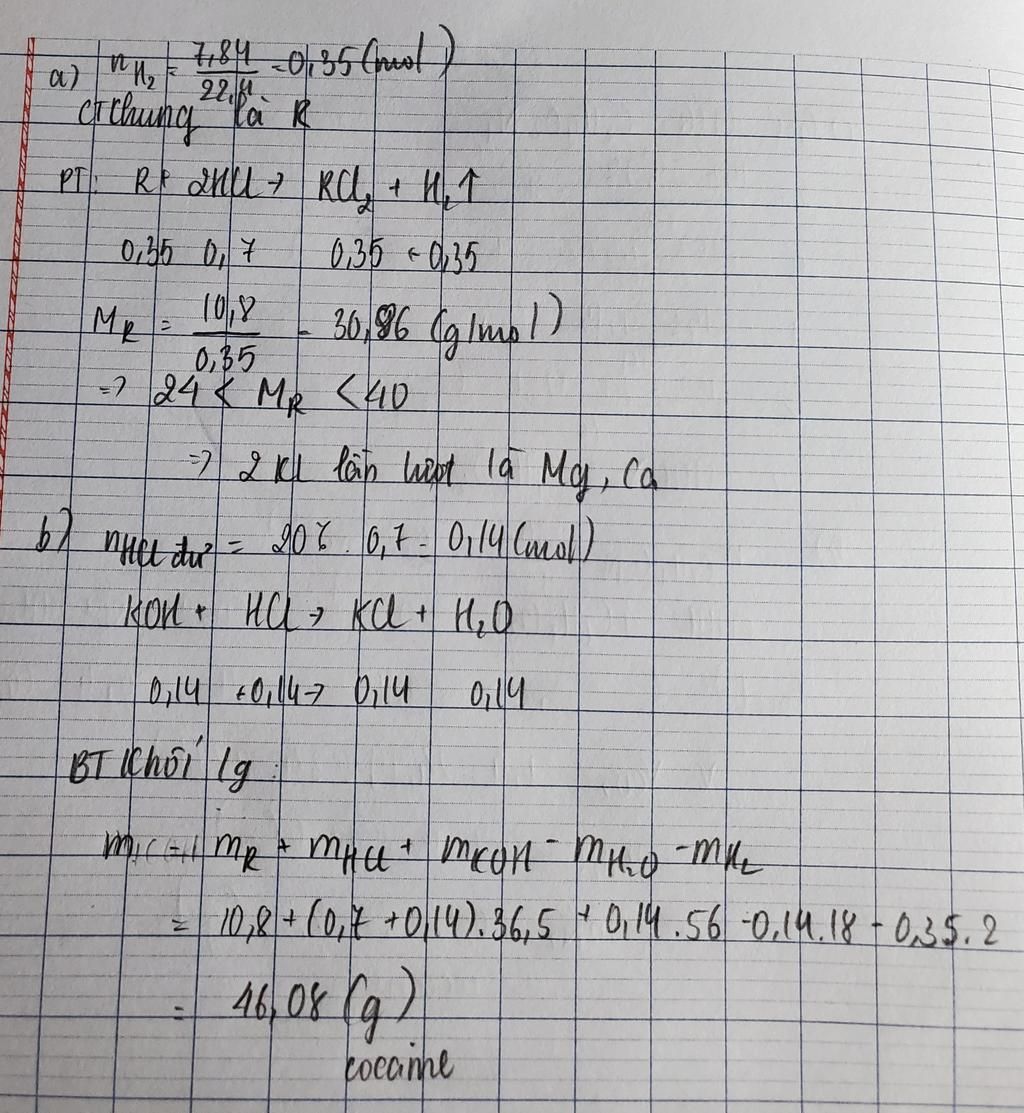 a) nH₂ = 7,84/22,4 = 0,35 (mol)
CT chung là R
PT: R + 2HCl → RCl₂ + H₂↑
0,35 0,7 0,35 ← 0,35
M_R = 10,8/0,35 = 30,86 (g/mol)
=> 24 < M_R < 40
=> 2 KL lần lượt là Mg, Ca
b) nHCl dư = 20% . 0,7 = 0,14 (mol)
KOH + HCl → KCl + H₂O
0,14 ← 0,14 → 0,14 0,14
BT khối lg:
m_R + mHCl + mKOH - mH₂O - mH₂
= 10,8 + (0,7 + 0,14).36,5 + 0,14.56 - 0,14.18 - 0,35.2
= 46,08 (g)
cocaine